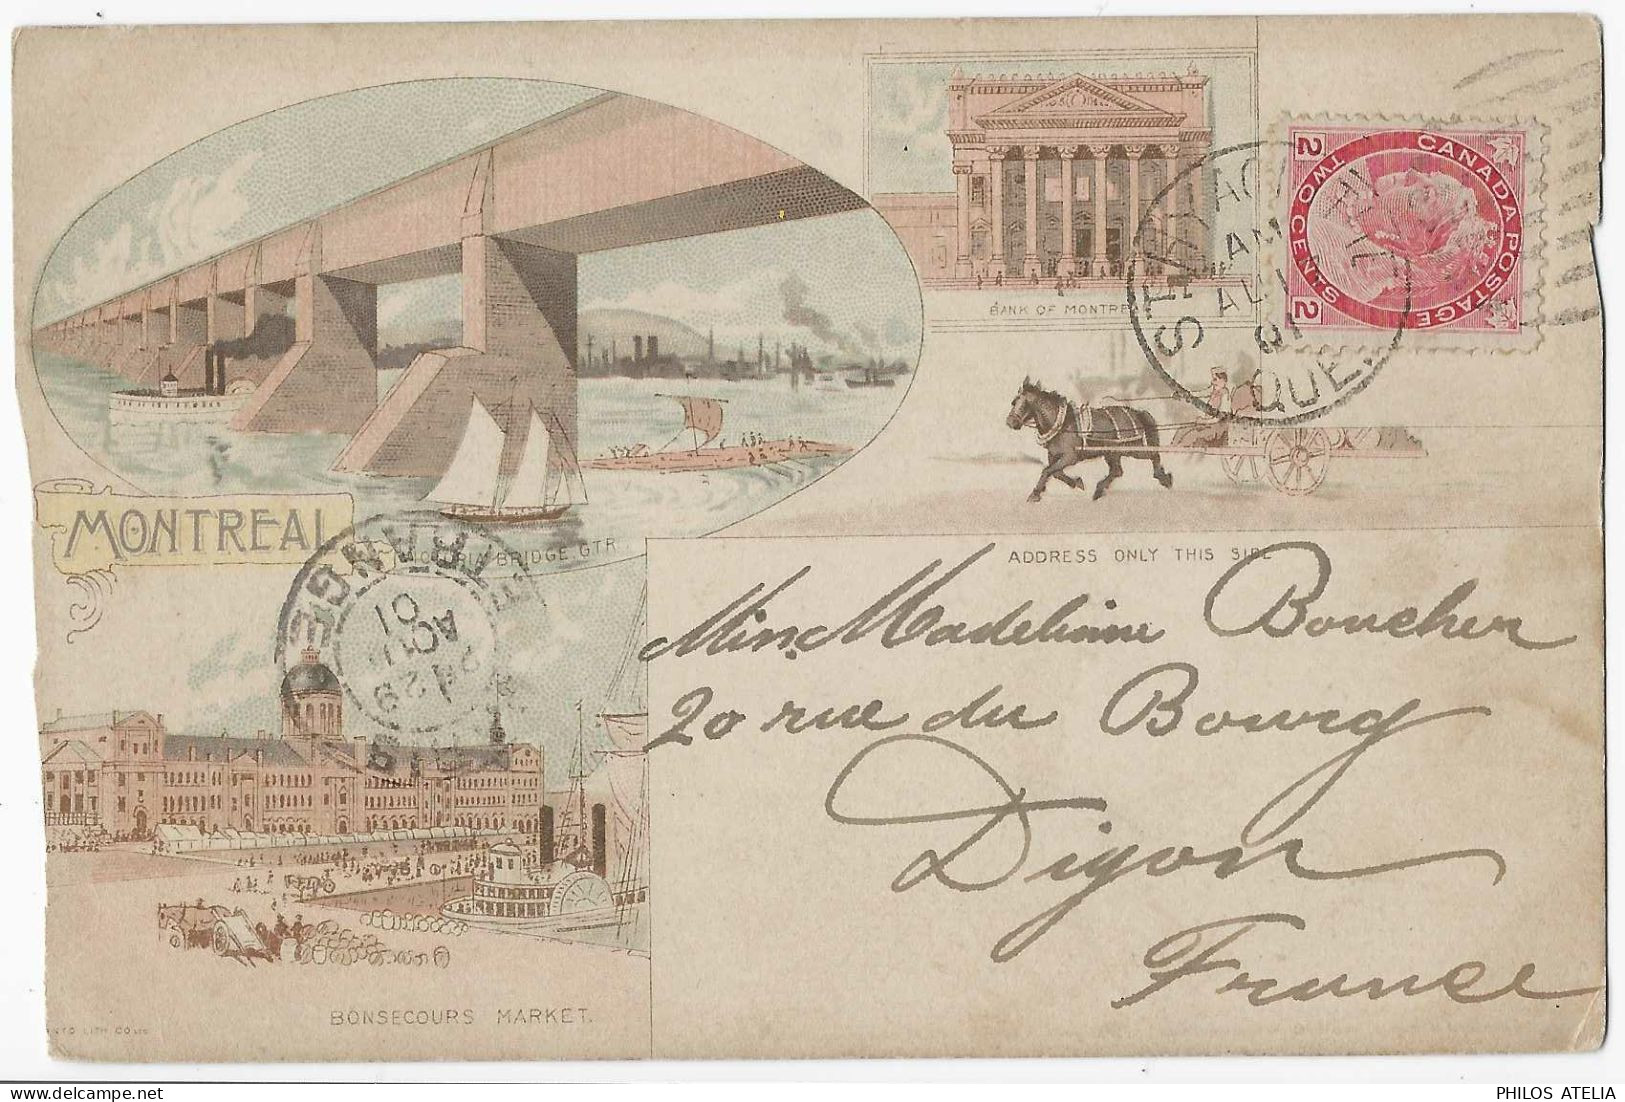 BANK OF MONTRE
CANADA POSTAGE
TWO CENTS
2 2
ST HYAC
AM
AU 1
01
QUE.
MONTREAL
VICTORIA BRIDGE GTR
ETRANGERE
24 29
AOUT
01
PARIS
ADDRESS ONLY THIS SIDE
Miss. Madeleine Boucher
20 rue du Bourg
Dijon
France
BONSECOURS MARKET.
LITH CO
PHILOS ATELIA